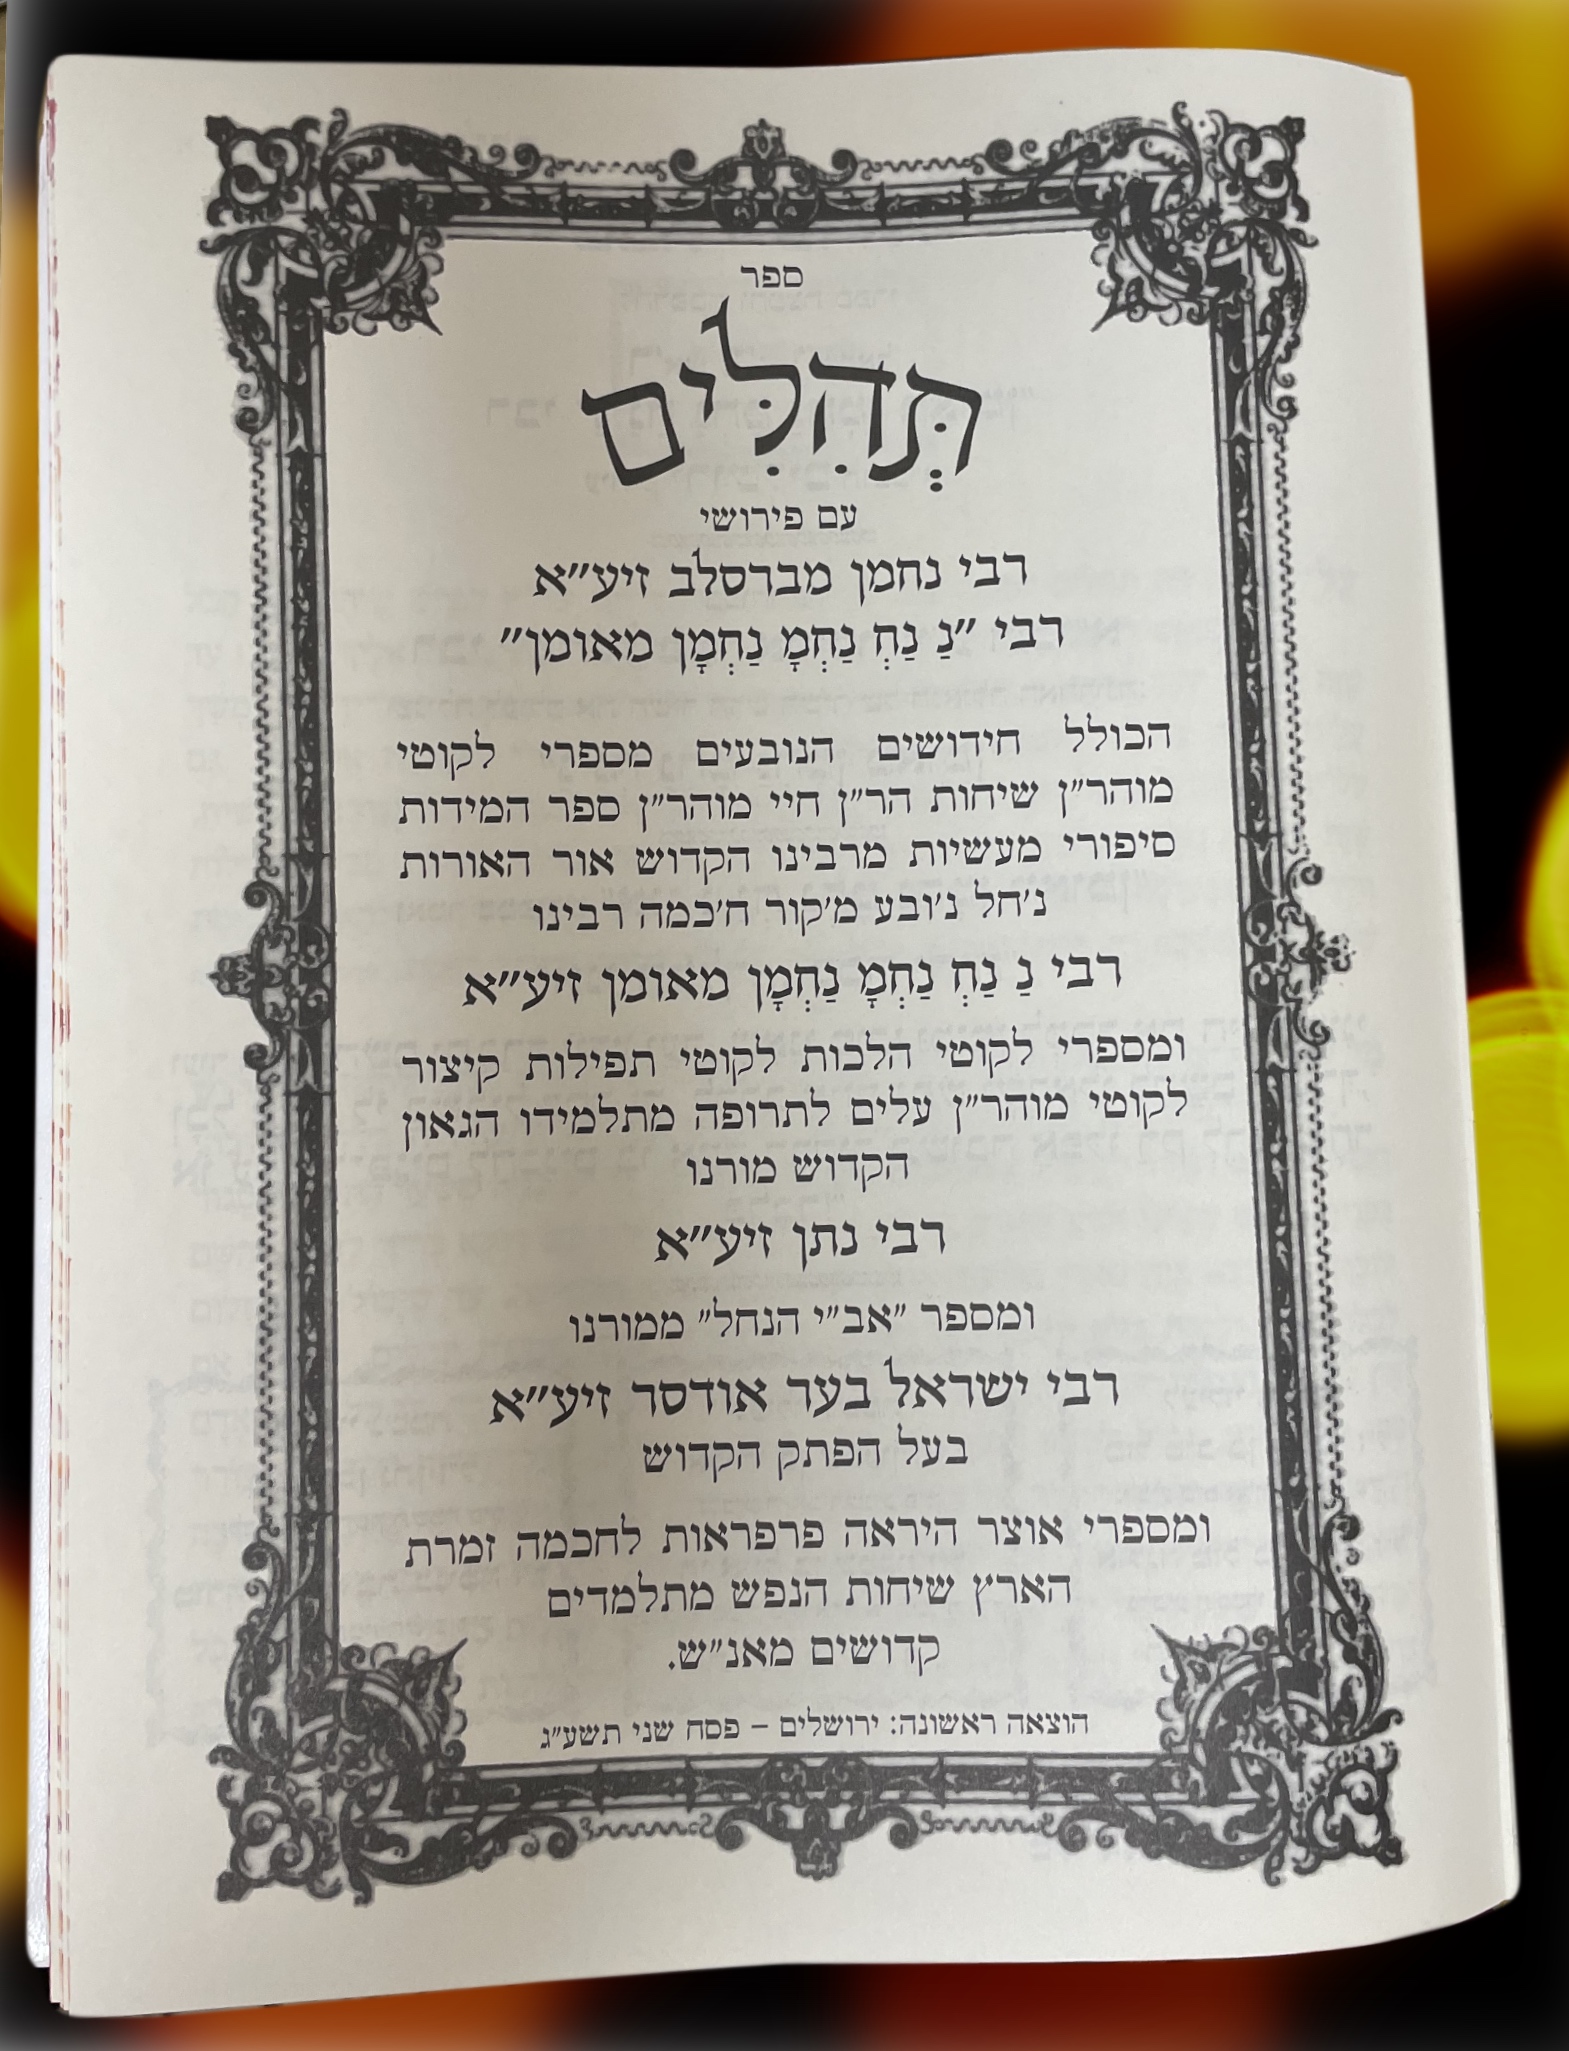 ספר
תְּהִלִּים
עם פירושי
רבי נחמן מברסלב זיע״א
רבי ״נַ נַחְ נַחְמָ נַחְמָן מאומן״
הכולל חידושים הנובעים מספרי לקוטי
מוהר״ן שיחות הר״ן חיי מוהר״ן ספר המידות
סיפורי מעשיות מרבינו הקדוש אור האורות
נ׳חל נ׳ובע מ׳קור ח׳כמה רבינו
רבי נַ נַחְ נַחְמָ נַחְמָן מאומן זיע״א
ומספרי לקוטי הלכות לקוטי תפילות קיצור
לקוטי מוהר״ן עלים לתרופה מתלמידו הגאון
הקדוש מורנו
רבי נתן זיע״א
ומספר ״אב״י הנחל״ ממורנו
רבי ישראל בער אודסר זיע״א
בעל הפתק הקדוש
ומספרי אוצר היראה פרפראות לחכמה זמרת
הארץ שיחות הנפש מתלמדים
קדושים מאנ״ש.
הוצאה ראשונה: ירושלים – פסח שני תשע״ג